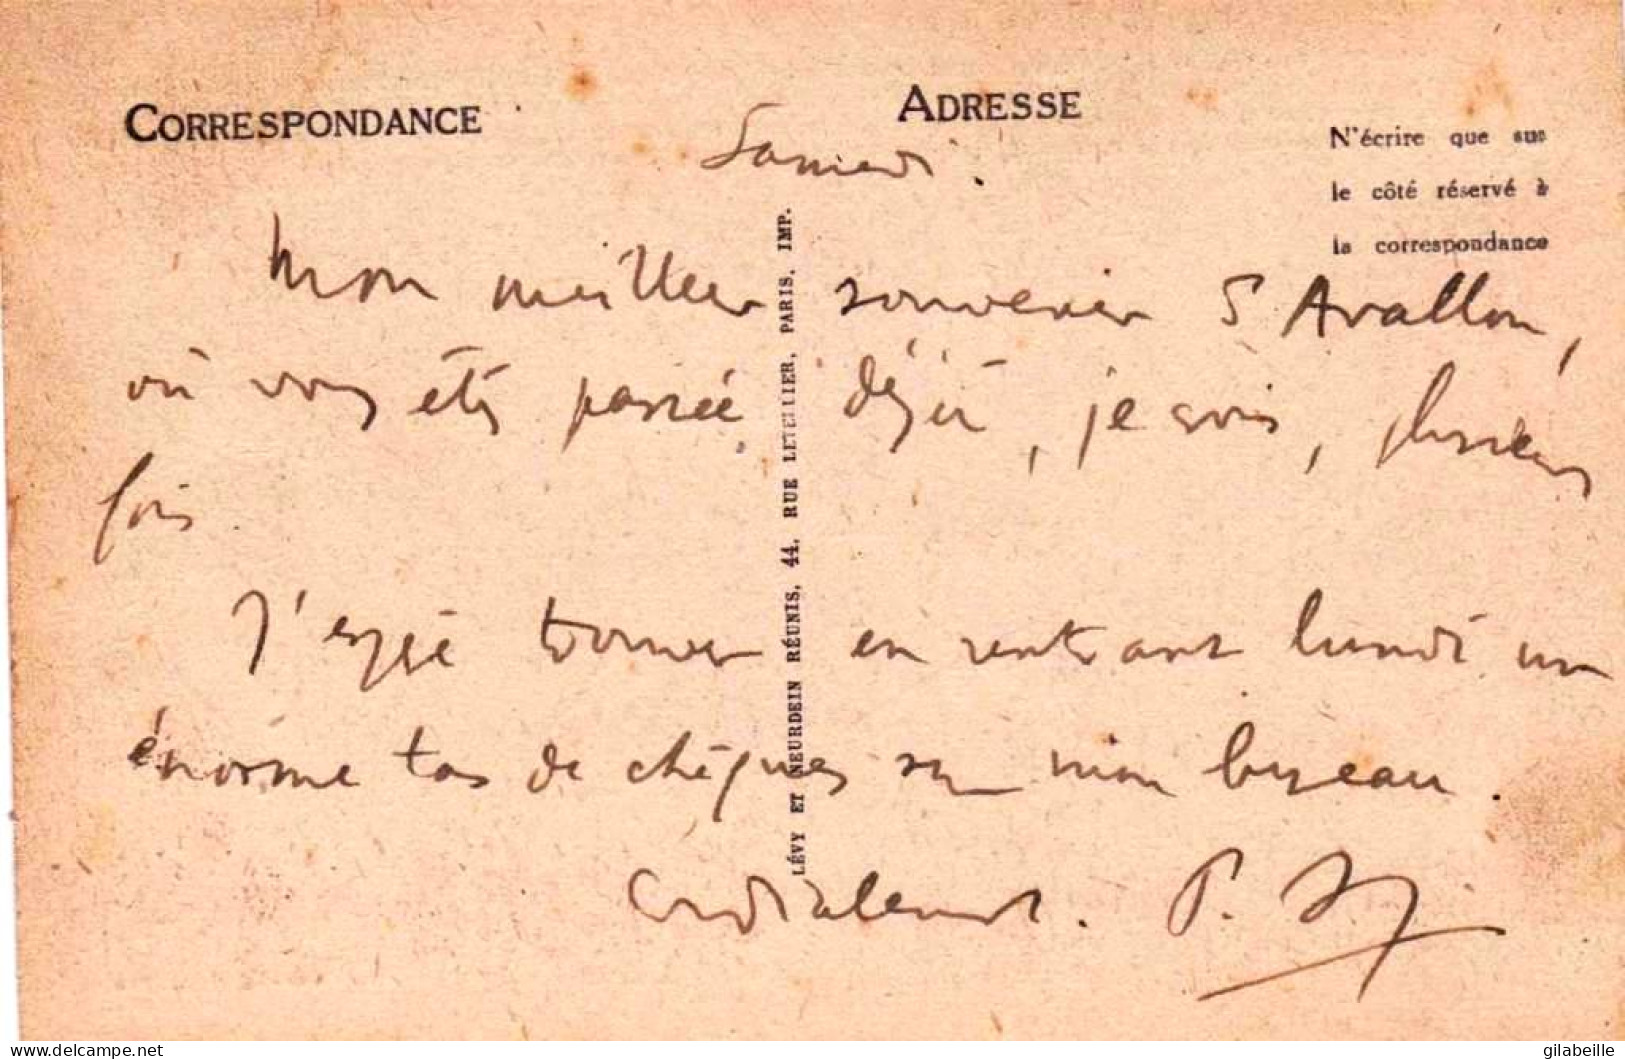 CORRESPONDANCE
ADRESSE
N'écrire que sur
le côté réservé à
la correspondance
Samedi.
Mon meilleur souvenir d'Avallon,
où vous êtes passée déjà, je crois, plusieurs
fois.
J'espère trouver en rentrant lundi un
énorme tas de chèques sur mon bureau.
Cordialement. P.
LÉVY ET NEURDEIN RÉUNIS, 44, RUE LETELLIER, PARIS, IMP.
delcampe.net
gilabeille